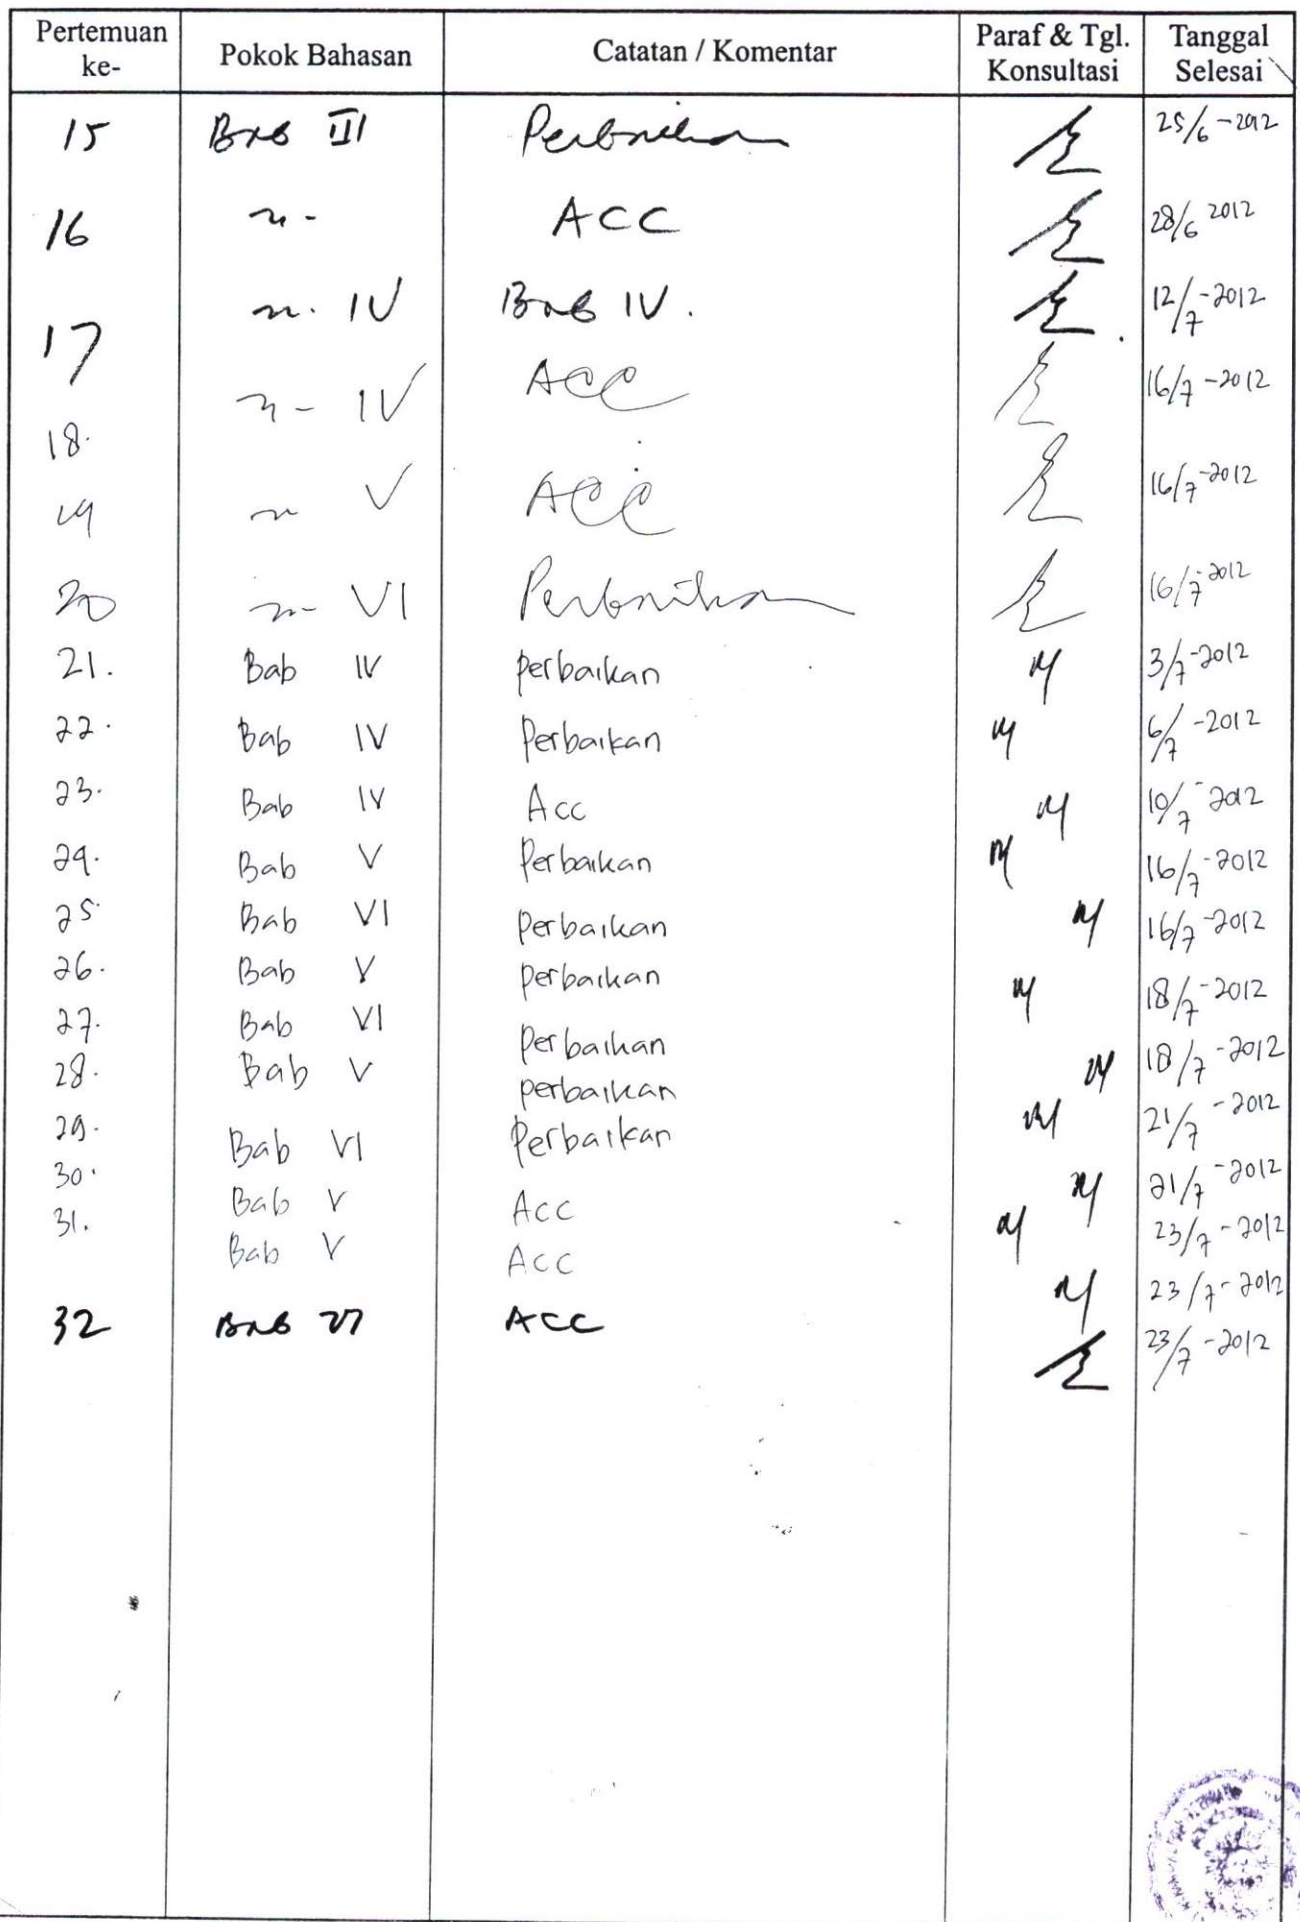 Pertemuan ke- Pokok Bahasan Catatan / Komentar Paraf & Tgl. Konsultasi Tanggal Selesai
15 Bab III Perbaikan 25/6-2012
16 n- ACC 28/6 2012
17 n. IV Bab IV. 12/7-2012
18. n- IV ACC 16/7-2012
19 n V ACC 16/7-2012
20 n- VI Perbaikan 16/7-2012
21. Bab IV perbaikan 3/7-2012
22. Bab IV Perbaikan 6/7-2012
23. Bab IV Acc 10/7-2012
24. Bab V Perbaikan 16/7-2012
25. Bab VI perbaikan 16/7-2012
26. Bab V perbaikan 18/7-2012
27. Bab VI perbaikan 18/7-2012
28. Bab V perbaikan 21/7-2012
29. Bab VI Perbaikan 21/7-2012
30. Bab V Acc 23/7-2012
31. Bab V Acc 23/7-2012
32 Bab VI ACC 23/7-2012